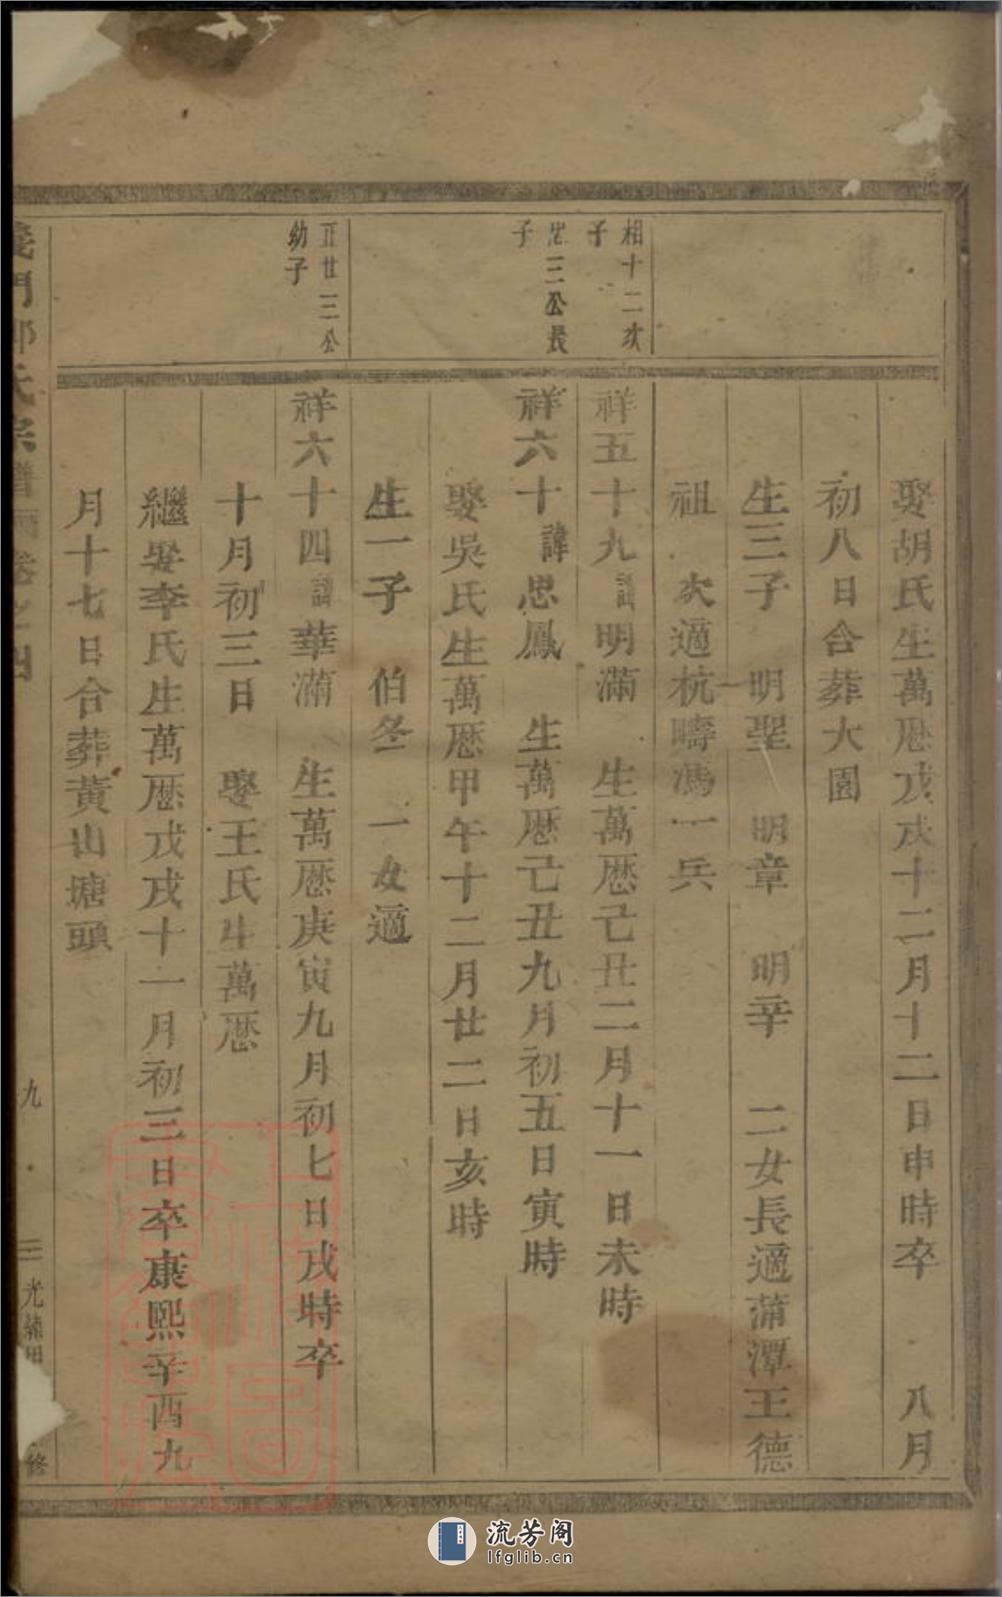 娶胡氏生萬厯戊戌十二月十二日申時卒 八月
初八日合葬大園
生三子 明聖 明章 明辛 二女長適蒲潭王德
祖 次適杭疇馮一兵
相十二次
子
祥五十九諱明滿 生萬厯己丑二月十一日未時
三公長
子
祥六十諱思鳳 生萬厯己丑九月初五日寅時
娶吳氏生萬厯甲午十二月廿二日亥時
生一子 伯冬 一女適
正廿三公
幼子
祥六十四諱華滿 生萬厯庚寅九月初七日戌時卒
十月初三日 娶王氏生萬厯
繼娶李氏生萬厯戊戌十一月初三日卒康熙辛酉九
月十七日合葬黃山塘頭
義門 氏宗譜 卷之四
九
三
光緒 修
流芳阁
lfglib.cn